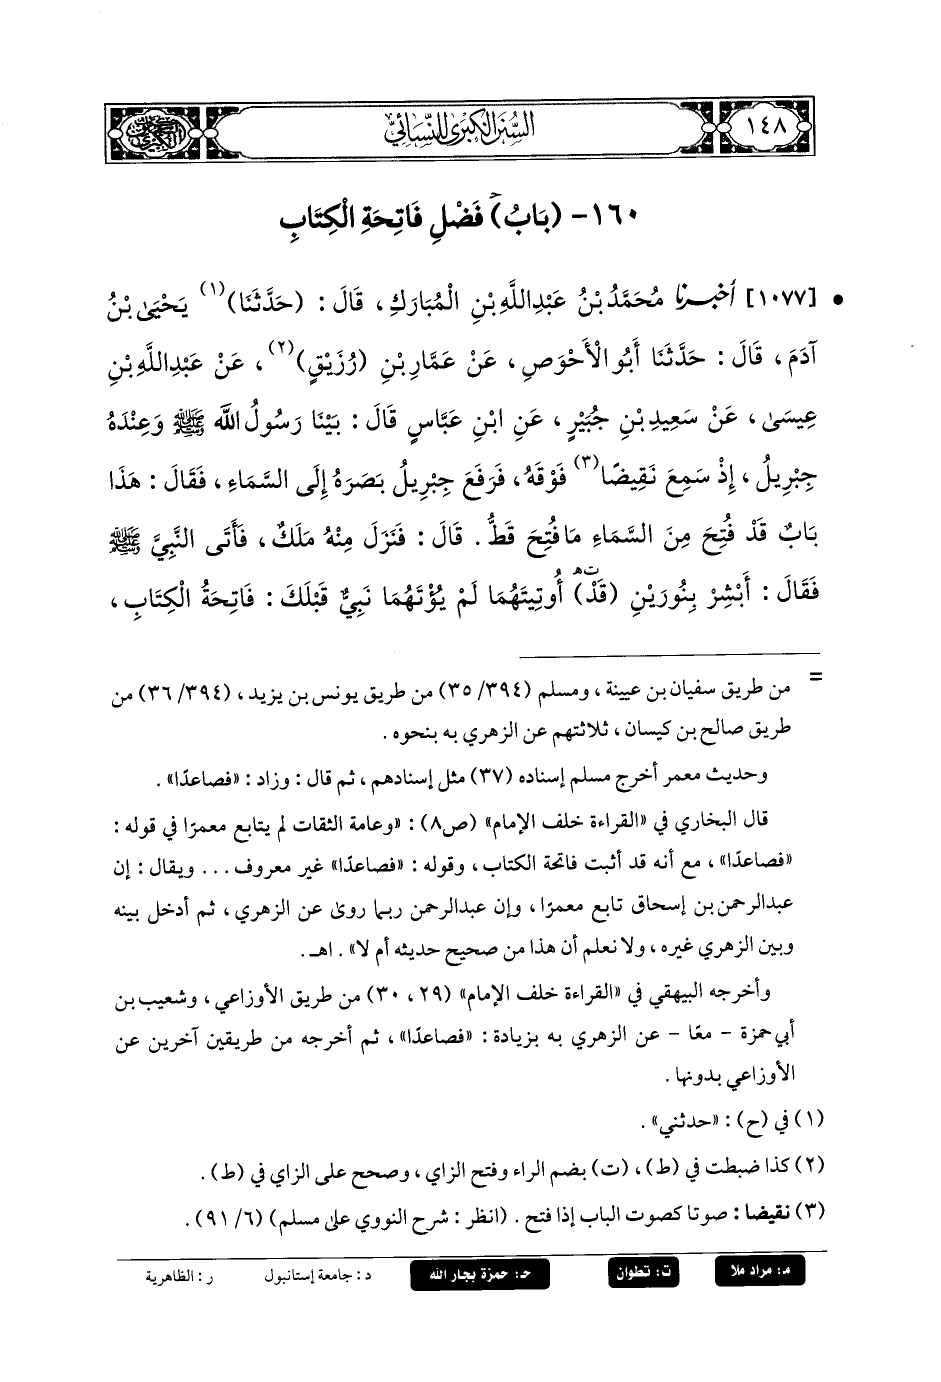 ١٤٨
السُّنَنُ الكُبْرَى لِلنَّسَائِيِّ
١٦٠- (بَابُ) فَضْلِ فَاتِحَةِ الْكِتَابِ
ح
• [١٠٧٧] أَخْبَرَنَا مُحَمَّدُ بْنُ عَبْدِاللَّهِ بْنِ الْمُبَارَكِ، قَالَ: (حَدَّثَنَا)(١) يَحْيَىٰ بْنُ
آدَمَ، قَالَ: حَدَّثَنَا أَبُو الْأَحْوَصِ، عَنْ عَمَّارِ بْنِ (رُزَيْقٍ)(٢)، عَنْ عَبْدِاللَّهِ بْنِ
عِيسَىٰ، عَنْ سَعِيدِ بْنِ جُبَيْرٍ، عَنِ ابْنِ عَبَّاسٍ قَالَ: بَيْنَا رَسُولُ اللَّه ﷺ وَعِنْدَهُ
جِبْرِيلُ، إِذْ سَمِعَ نَقِيضًا(٣) فَوْقَهُ، فَرَفَعَ جِبْرِيلُ بَصَرَهُ إِلَى السَّمَاءِ، فَقَالَ: هَذَا
بَابٌ قَدْ فُتِحَ مِنَ السَّمَاءِ مَا فُتِحَ قَطُّ. قَالَ: فَنَزَلَ مِنْهُ مَلَكٌ، فَأَتَى النَّبِيَّ ﷺ
فَقَالَ: أَبْشِرْ بِنُورَيْنِ (قَدْ) أُوتِيتَهُمَا لَمْ يُؤْتَهُمَا نَبِيٌّ قَبْلَكَ: فَاتِحَةُ الْكِتَابِ،
= من طريق سفيان بن عيينة، ومسلم (٣٩٤/ ٣٥) من طريق يونس بن يزيد، (٣٩٤/ ٣٦) من
طريق صالح بن كيسان، ثلاثتهم عن الزهري به بنحوه.
وحديث معمر أخرج مسلم إسناده (٣٧) مثل إسنادهم، ثم قال: وزاد: «فصاعدًا».
قال البخاري في «القراءة خلف الإمام» (ص٨): «وعامة الثقات لم يتابع معمرًا في قوله:
«فصاعدًا»، مع أنه قد أثبت فاتحة الكتاب، وقوله: «فصاعدًا» غير معروف... ويقال: إن
عبدالرحمن بن إسحاق تابع معمرًا، وإن عبدالرحمن ربما روىٰ عن الزهري، ثم أدخل بينه
وبين الزهري غيره، ولا نعلم أن هذا من صحيح حديثه أم لا». اهـ.
وأخرجه البيهقي في «القراءة خلف الإمام» (٢٩، ٣٠) من طريق الأوزاعي، وشعيب بن
أبي حمزة - معًا - عن الزهري به بزيادة: «فصاعدًا»، ثم أخرجه من طريقين آخرين عن
الأوزاعي بدونها.
(١) في (ح): «حدثني».
(٢) كذا ضبطت في (ط)، (ت) بضم الراء وفتح الزاي، وصحح على الزاي في (ط).
(٣) نقيضا: صوتا كصوت الباب إذا فتح. (انظر: شرح النووي على مسلم) (٦/ ٩١).
م: مراد ملا ت: تطوان حـ: حمزة بجار الله د: جامعة إستانبول ر: الظاهرية